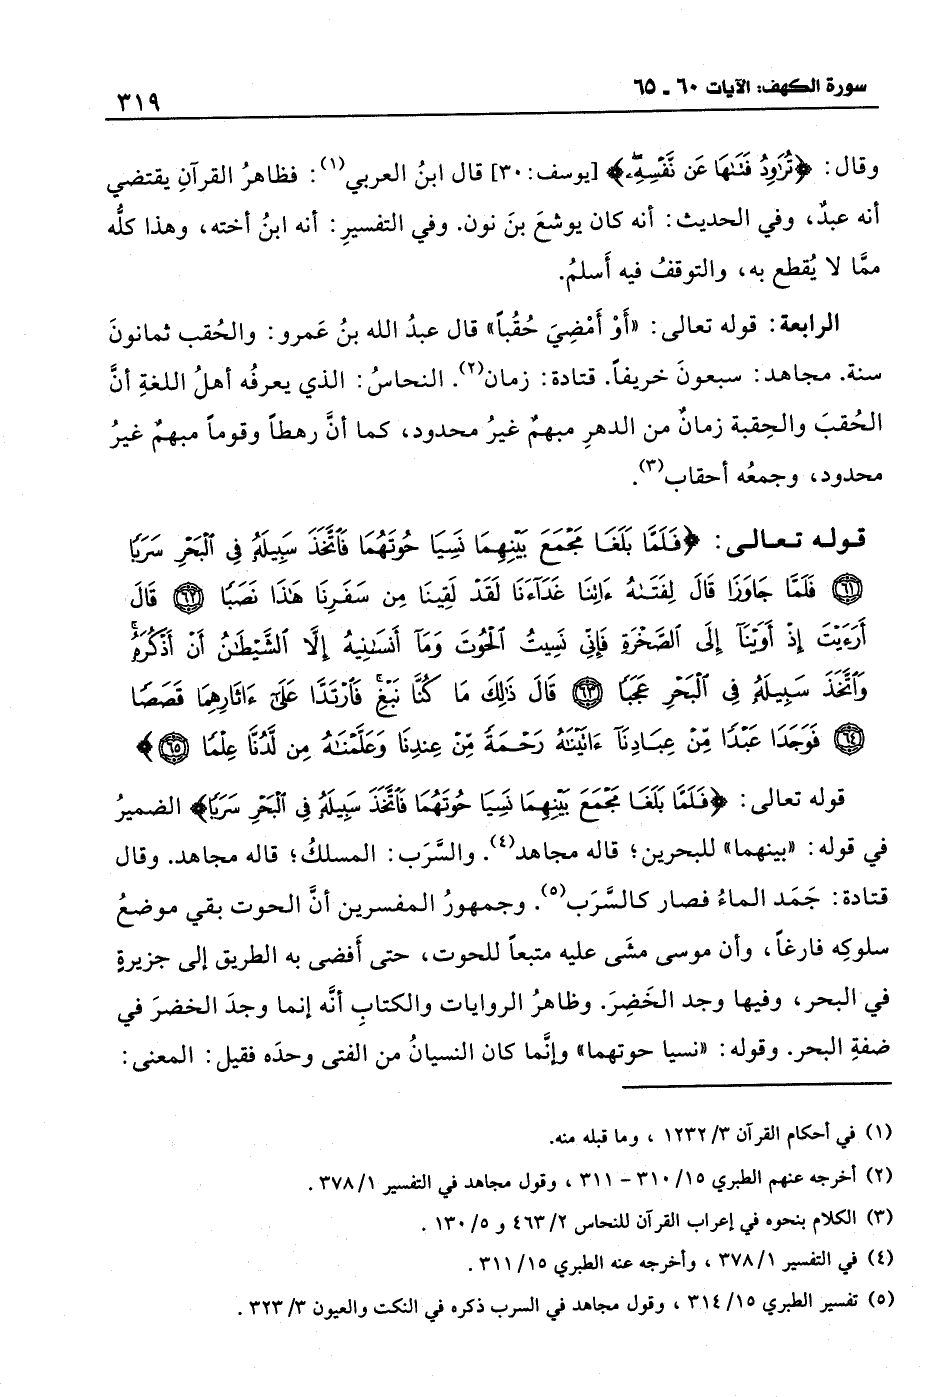 سورة الكهف: الآيات ٦٠ ـ ٦٥
٣١٩
وقال: ﴿تُرَاوِدُ فَتَاهَا عَن نَّفْسِهِ﴾ [يوسف: ٣٠] قال ابنُ العربي(١): فظاهرُ القرآنِ يقتضي
أنه عبدٌ، وفي الحديث: أنه كان يوشعَ بنَ نون. وفي التفسيرِ: أنه ابنُ أخته، وهذا كلُّه
ممَّا لا يُقطع به، والتوقفُ فيه أَسلمُ.
الرابعة: قوله تعالى: «أَوْ أَمْضِيَ حُقُباً» قال عبدُ الله بنُ عَمرو: والحُقب ثمانونَ
سنة. مجاهد: سبعونَ خريفاً. قتادة: زمان(٢). النحاسُ: الذي يعرفُه أهلُ اللغةِ أنَّ
الحُقبَ والحِقبة زمانٌ من الدهرِ مبهمٌ غيرُ محدود، كما أنَّ رهطاً وقوماً مبهمٌ غيرُ
محدود، وجمعُه أحقاب(٣).
قوله تعالى: ﴿فَلَمَّا بَلَغَا مَجْمَعَ بَيْنِهِمَا نَسِيَا حُوتَهُمَا فَاتَّخَذَ سَبِيلَهُ فِي الْبَحْرِ سَرَبًا
٦١ فَلَمَّا جَاوَزَا قَالَ لِفَتَاهُ ءَاتِنَا غَدَاءَنَا لَقَدْ لَقِينَا مِن سَفَرِنَا هَذَا نَصَبًا ٦٢ قَالَ
أَرَءَيْتَ إِذْ أَوَيْنَا إِلَى الصَّخْرَةِ فَإِنِّي نَسِيتُ الْحُوتَ وَمَا أَنسَانِيهُ إِلَّا الشَّيْطَانُ أَنْ أَذْكُرَهُ
وَاتَّخَذَ سَبِيلَهُ فِي الْبَحْرِ عَجَبًا ٦٣ قَالَ ذَلِكَ مَا كُنَّا نَبْغِ فَارْتَدَّا عَلَى ءَاثَارِهِمَا قَصَصًا
٦٤ فَوَجَدَا عَبْدًا مِّنْ عِبَادِنَا ءَاتَيْنَاهُ رَحْمَةً مِّنْ عِندِنَا وَعَلَّمْنَاهُ مِن لَّدُنَّا عِلْمًا ٦٥﴾
قوله تعالى: ﴿فَلَمَّا بَلَغَا مَجْمَعَ بَيْنِهِمَا نَسِيَا حُوتَهُمَا فَاتَّخَذَ سَبِيلَهُ فِي الْبَحْرِ سَرَبًا﴾ الضميرُ
في قوله: «بينهما» للبحرين؛ قاله مجاهد(٤). والسَّرَب: المسلكُ؛ قاله مجاهد. وقال
قتادة: جَمَد الماءُ فصار كالسَّرَب(٥). وجمهورُ المفسرين أنَّ الحوت بقي موضعُ
سلوكِه فارغاً، وأن موسى مشَى عليه متبعاً للحوت، حتى أَفضى به الطريق إلى جزيرةٍ
في البحر، وفيها وجد الخَضِرَ. وظاهرُ الروايات والكتابِ أنَّه إنما وجدَ الخضرَ في
ضفةِ البحر. وقوله: «نسيا حوتهما» وإنَّما كان النسيانُ من الفتى وحدَه فقيل: المعنى:
(١) في أحكام القرآن ٣/ ١٢٣٢ ، وما قبله منه.
(٢) أخرجه عنهم الطبري ١٥/ ٣١٠ – ٣١١ ، وقول مجاهد في التفسير ١/ ٣٧٨ .
(٣) الكلام بنحوه في إعراب القرآن للنحاس ٢/ ٤٦٣ و ٥/ ١٣٠ .
(٤) في التفسير ١/ ٣٧٨ ، وأخرجه عنه الطبري ١٥/ ٣١١ .
(٥) تفسير الطبري ١٥/ ٣١٤ ، وقول مجاهد في السرب ذكره في النكت والعيون ٣/ ٣٢٣ .